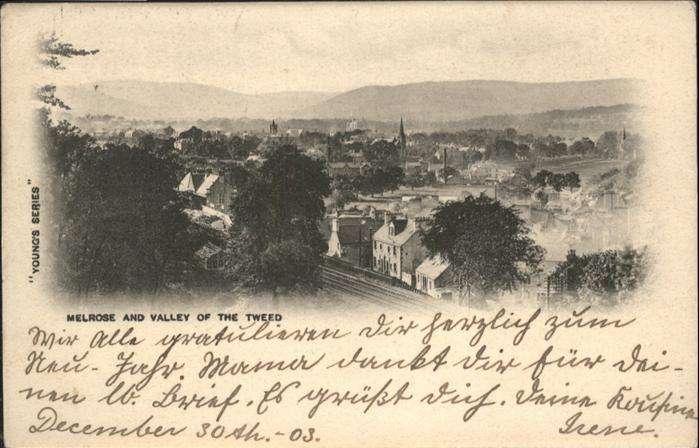 "YOUNG'S SERIES"
MELROSE AND VALLEY OF THE TWEED
Wir Alle gratulieren Dir herzlich zum
Neu-Jahr. Mama dankt Dir für Dei-
nen lb. Brief. Es grüßt Dich. Deine Kousine
December 30th.-03. Irene.